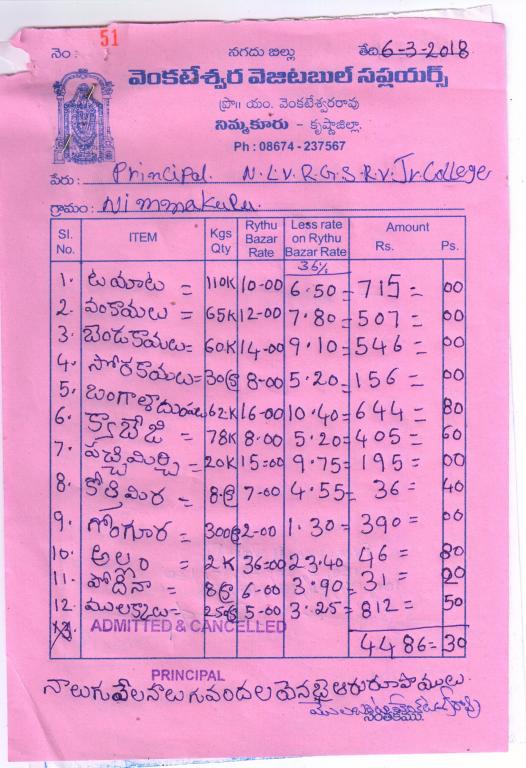 51
నెం : నగదు బిల్లు తేది 6-3-2018
వెంకటేశ్వర వెజిటబుల్ సప్లయర్స్
ప్రొ॥ యం. వెంకటేశ్వరరావు
నిమ్మకూరు - కృష్ణాజిల్లా.
Ph : 08674 - 237567
పేరు : Principal. N.L.V.R.G.S.R.V. Jr. College
గ్రామం : Nimmakuru.
Sl. No. ITEM Kgs Qty Rythu Bazar Rate Less rate on Rythu Bazar Rate Amount Rs. Ps.
1. టమాట = 110K 10-00 6.50 = 715 = 00
2. వంకాయలు = 65K 12-00 7.80 = 507 = 00
3. బెండకాయలు = 60K 14-00 9.10 = 546 = 00
4. సోరకాయలు = 30 8-00 5.20 = 156 = 00
5. 62K 16-00 10.40 = 644 = 80
6. క్యాబేజి = 78K 8-00 5.20 = 405 = 60
7. పచ్చిమిర్చి = 20K 15=00 9.75 = 195 = 00
8. కొత్తిమిర = 8 7-00 4.55 = 36 = 40
9. గోంగూర = 300 2-00 1.30 = 390 = 00
10. అల్లం = 2K 36-00 23.40 46 = 80
11. పోదీనా = 8 6-00 3.90 = 31 = 20
12. ములక్కాలు = 250 5-00 3.25 = 812 = 50
ADMITTED & CANCELLED
4486 = 30
PRINCIPAL
నాలుగువేలనాలుగువందల యెనభైఆరురూపాయలు.
సంతకము.